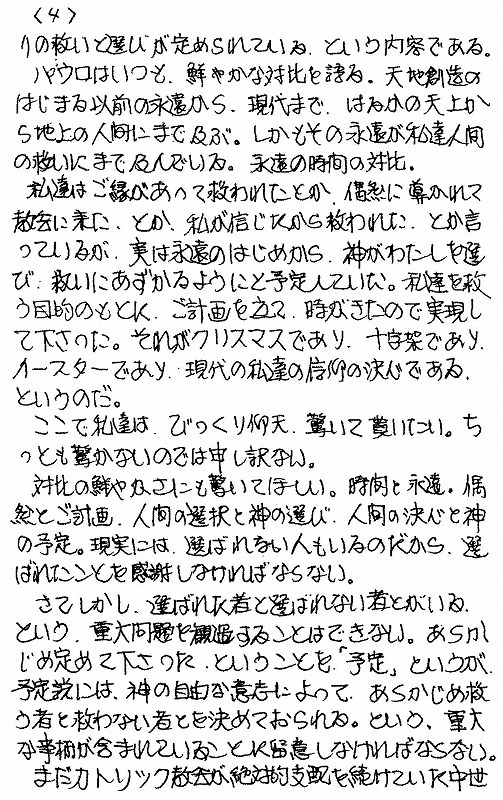 (4)
りの救いと選びが定められている、という内容である。
パウロはいつも、鮮やかな対比を語る。天地創造の
はじまる以前の永遠から、現代まで、はるかの天上か
ら地上の人間にまで及ぶ。しかもその永遠が私達人間
の救いにまで及んでいる。永遠の時間の対比。
私達はご縁があって救われたとか、偶然に導かれて
教会に来た、とか、私が信じたから救われた、とか言
っているが、実は永遠のはじめから、神がわたしを選
び、救いにあずかるようにと予定していた。私達を救
う目的のもとに、ご計画を立て、時がきたので実現し
て下さった。それがクリスマスであり、十字架であり、
イースターであり、現代の私達の信仰の決心である、
というのだ。
ここで私達は、びっくり仰天、驚いて貰いたい。ち
っとも驚かないのでは申し訳ない。
対比の鮮やかさにも驚いてほしい。時間と永遠。偶
然とご計画、人間の選択と神の選び、人間の決心と神
の予定。現実には、選ばれない人もいるのだから、選
ばれたことを感謝しなければならない。
さてしかし、選ばれた者と選ばれない者とがいる、
という、重大問題を看過することはできない。あらか
じめ定めて下さった、ということを、「予定」というが、
予定説には、神の自由な意志によって、あらかじめ救
う者と救わない者とを決めておられる、という、重大
な事柄が含まれていることに留意しなければならない。
まだカトリック教会が絶対的支配を続けていた中世